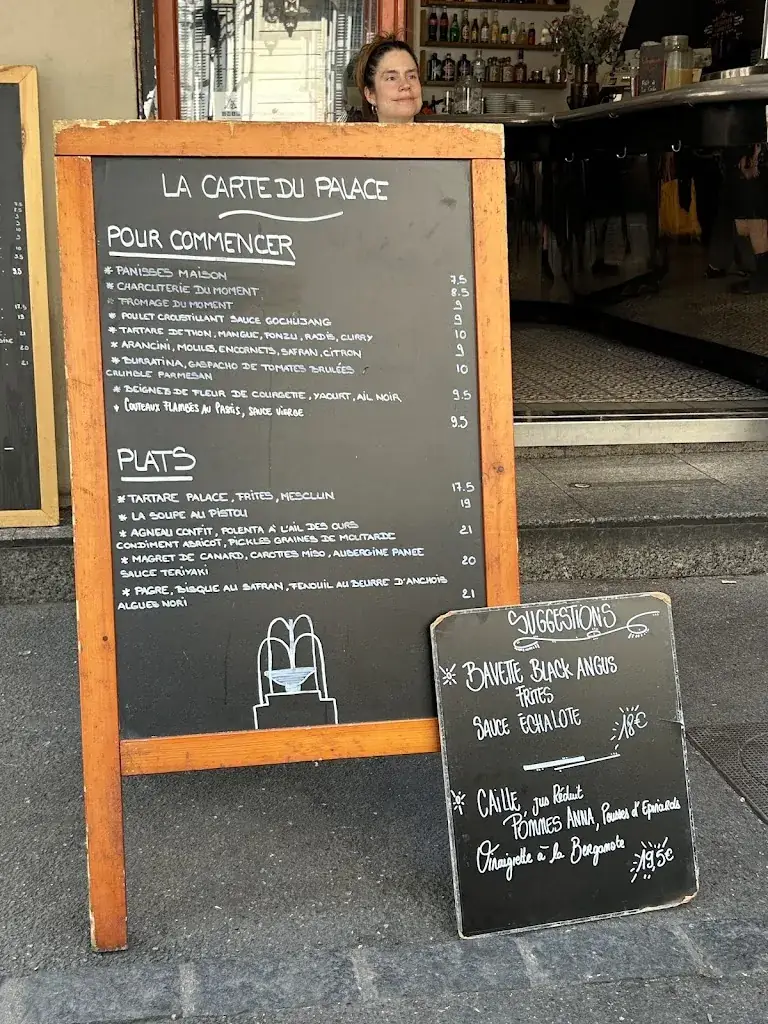 LA CARTE DU PALACE
POUR COMMENCER
* PANISSES MAISON 7.5
* CHARCUTERIE DU MOMENT 8.5
* FROMAGE DU MOMENT 9
* POULET CROUSTILLANT SAUCE GOCHUJANG 9
* TARTARE DE THON, MANGUE, PONZU, RADIS, CURRY 10
* ARANCINI, MOULES, ENCORNETS, SAFRAN, CITRON 9
* BURRATINA, GASPACHO DE TOMATES BRULÉES 10
CRUMBLE PARMESAN
* BEIGNET DE FLEUR DE COURGETTE, YAOURT, AIL NOIR 9.5
* COUTEAUX FLAMBÉS AU PASTIS, SAUCE VIERGE 9.5
PLATS
* TARTARE PALACE, FRITES, MESCLUN 17.5
* LA SOUPE AU PISTOU 19
* AGNEAU CONFIT, POLENTA À L'AIL DES OURS 21
CONDIMENT ABRICOT, PICKLES GRAINES DE MOUTARDE
* MAGRET DE CANARD, CAROTTES MISO, AUBERGINE PANEE 20
SAUCE TERIYAKI
* PAGRE, BISQUE AU SAFRAN, FENOUIL AU BEURRE D'ANCHOIS 21
ALGUES NORI
SUGGESTIONS
BAVETTE BLACK ANGUS
FRITES
SAUCE ECHALOTE 18€
CAILLE jus Réduit
POMMES ANNA, Pousses d'Epinards
Vinaigrette à la Bergamote 19,5€